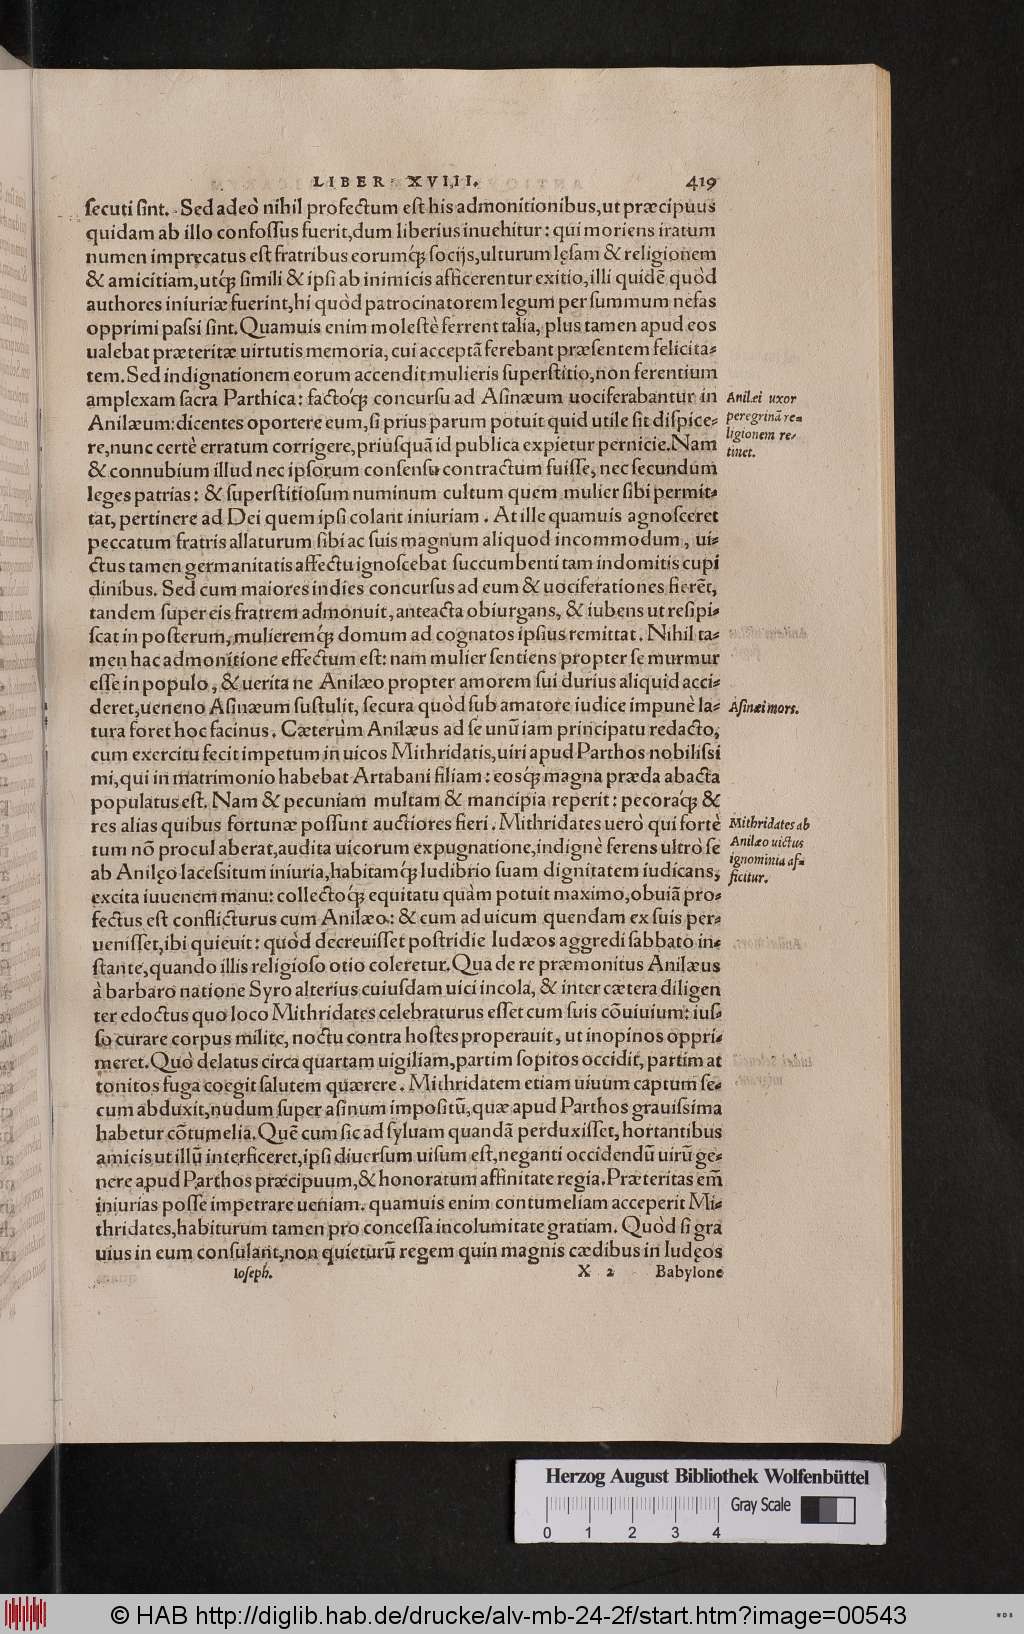 LIBER XVIII. 419
ſecuti ſint. Sed adeò nihil profectum eſt his admonitionibus, ut præcipuus
quidam ab illo confoſſus fuerit, dum liberius inuehitur: qui moriens iratum
numen imprecatus eſt fratribus eorumq́; ſocijs, ulturum lęſam & religionem
& amicitiam, utq́; ſimili & ipſi ab inimicis afficerentur exitio, illi quidẽ quòd
authores iniuriæ fuerint, hi quòd patrocinatorem legum per ſummum nefas
opprimi paſsi ſint. Quamuis enim moleſtè ferrent talia, plus tamen apud eos
ualebat præteritæ uirtutis memoria, cui acceptã ferebant præſentem felicita-
tem. Sed indignationem eorum accendit mulieris ſuperſtitio, non ferentium
amplexam ſacra Parthica: factoq́; concurſu ad Aſinæum uociferabantur in
Anilæum: dicentes oportere eum, ſi prius parum potuit quid utile ſit diſpice-
re, nunc certè erratum corrigere, priuſquã id publica expietur pernicie. Nam
& connubium illud nec ipſorum conſenſu contractum fuiſſe, nec ſecundum
leges patrias: & ſuperſtitioſum numinum cultum quem mulier ſibi permit-
tat, pertinere ad Dei quem ipſi colant iniuriam. At ille quamuis agnoſceret
peccatum fratris allaturum ſibi ac ſuis magnum aliquod incommodum, ui-
ctus tamen germanitatis affectu ignoſcebat ſuccumbenti tam indomitis cupi
dinibus. Sed cum maiores indies concurſus ad eum & uociferationes fierẽt,
tandem ſuper eis fratrem admonuit, anteacta obiurgans, & iubens ut reſipi-
ſcat in poſterum, mulieremq́; domum ad cognatos ipſius remittat. Nihil ta-
men hac admonitione effectum eſt: nam mulier ſentiens propter ſe murmur
eſſe in populo, & uerita ne Anilæo propter amorem ſui durius aliquid acci-
deret, ueneno Aſinæum ſuſtulit, ſecura quòd ſub amatore iudice impunè la-
tura foret hoc facinus. Cæterùm Anilæus ad ſe unũ iam principatu redacto,
cum exercitu fecit impetum in uicos Mithridatis, uiri apud Parthos nobiliſsi
mi, qui in matrimonio habebat Artabani filiam: eosq́; magna præda abacta
populatus eſt. Nam & pecuniam multam & mancipia reperit: pecoraq́; &
res alias quibus fortunæ poſſunt auctiores fieri. Mithridates uerò qui fortè
tum nõ procul aberat, audita uicorum expugnatione, indignè ferens ultro ſe
ab Anilęo laceſsitum iniuria, habitamq́; ludibrio ſuam dignitatem iudicans,
excita iuuenem manu: collectoq́; equitatu quàm potuit maximo, obuiã pro-
fectus eſt conflicturus cum Anilæo: & cum ad uicum quendam ex ſuis per-
ueniſſet, ibi quieuit: quòd decreuiſſet poſtridie Iudæos aggredi ſabbato in-
ſtante, quando illis religioſo otio coleretur. Qua de re præmonitus Anilæus
à barbaro natione Syro alterius cuiuſdam uici incola, & inter cætera diligen
ter edoctus quo loco Mithridates celebraturus eſſet cum ſuis cõuiuium: iuſ-
ſo curare corpus milite, noctu contra hoſtes properauit, ut inopinos oppri-
meret. Quò delatus circa quartam uigiliam, partim ſopitos occidit, partim at
tonitos fuga coegit ſalutem quærere. Mithridatem etiam uiuum captum ſe-
cum abduxit, nudum ſuper aſinum impoſitũ, quæ apud Parthos grauiſsima
habetur cõtumelia. Quẽ cum ſic ad ſyluam quandã perduxiſſet, hortantibus
amicis ut illũ interficeret, ipſi diuerſum uiſum eſt, neganti occidendũ uirũ ge-
nere apud Parthos præcipuum, & honoratum affinitate regia. Præteritas em̃
iniurias poſſe impetrare ueniam. quamuis enim contumeliam acceperit Mi-
thridates, habiturum tamen pro conceſſa incolumitate gratiam. Quòd ſi gra
uius in eum conſulant, non quieturũ regem quin magnis cædibus in Iudęos
Ioſeph. X 2 Babylone
Anilæi uxor
peregrinã re-
ligionem re-
tinet.
Aſinæi mors.
Mithridates ab
Anilæo uictus
ignominia af-
ficitur.
Herzog August Bibliothek Wolfenbüttel
Gray Scale
0 1 2 3 4
© HAB http://diglib.hab.de/drucke/alv-mb-24-2f/start.htm?image=00543